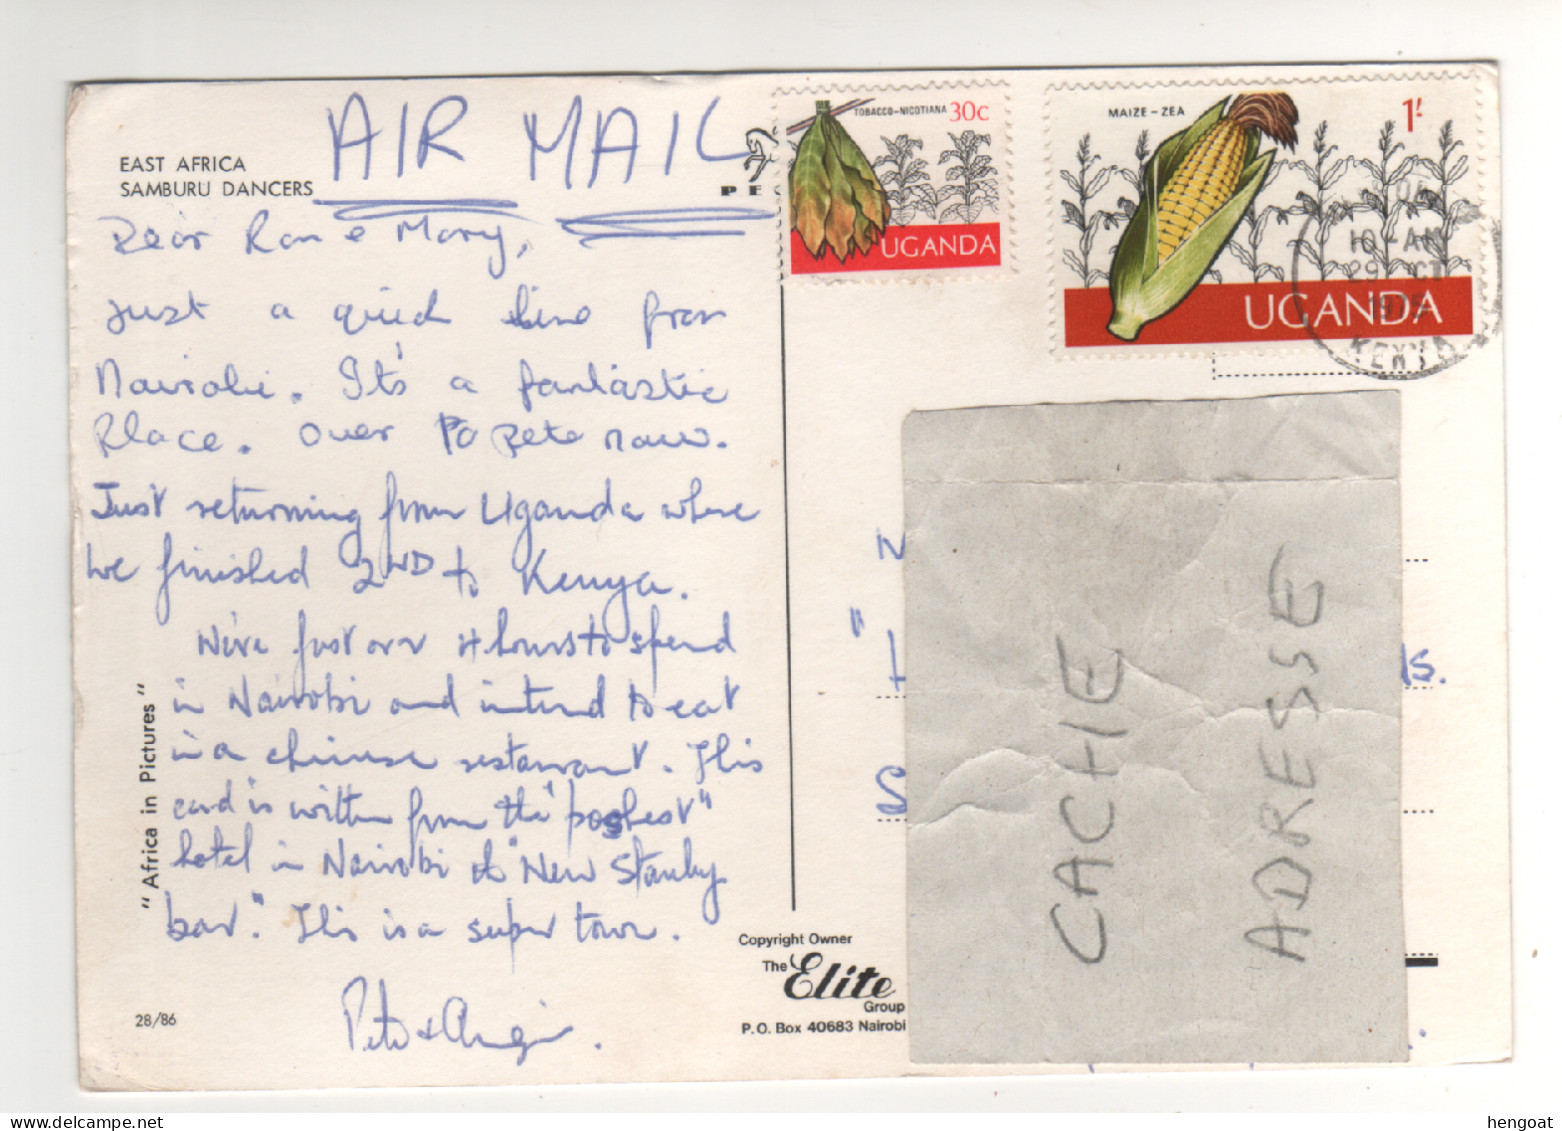 AIR MAIL
EAST AFRICA
SAMBURU DANCERS
TOBACCO-NICOTIANA 30c
UGANDA
MAIZE-ZEA 1/-
UGANDA
10-AM
29 OCT
KENYA
Dear Ron & Mary,
Just a quick line from
Nairobi. It's a fantastic
Place. Over to Pete now.
Just returning from Uganda where
we finished 2ND to Kenya.
We've just over 4 hours to spend
in Nairobi and intend to eat
in a chinese restaurant. This
card is written from the "poshest"
hotel in Nairobi "New Stanley
bar". This is a super town.
Pete & Angie.
"Africa in Pictures"
28/86
Copyright Owner
The Elite
Group
P.O. Box 40683 Nairobi
CACHE
ADRESSE
hengoat